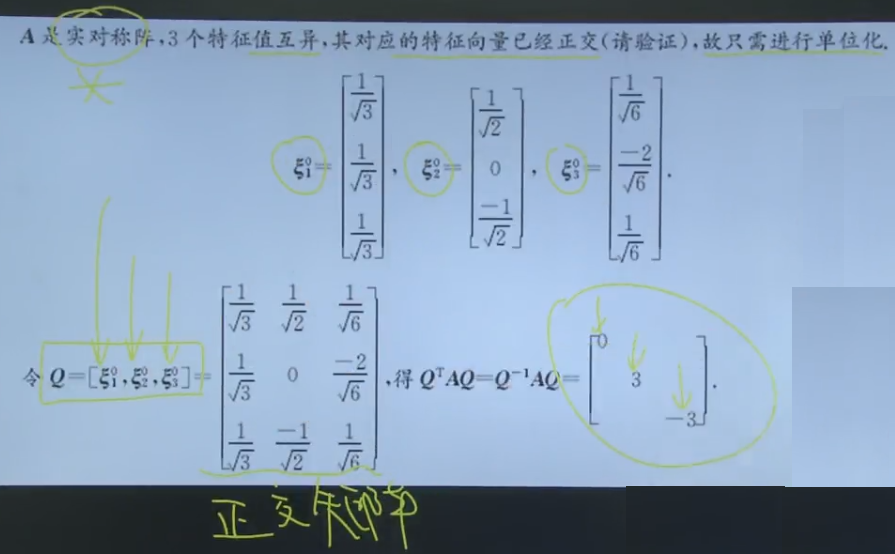 A是实对称阵,3个特征值互异,其对应的特征向量已经正交(请验证),故只需进行单位化.
ξ₁⁰=[1/√3, 1/√3, 1/√3], ξ₂⁰=[1/√2, 0, -1/√2], ξ₃⁰=[1/√6, -2/√6, 1/√6].
令Q=[ξ₁⁰,ξ₂⁰,ξ₃⁰]=[1/√3 1/√2 1/√6; 1/√3 0 -2/√6; 1/√3 -1/√2 1/√6],得QᵀAQ=Q⁻¹AQ=[0 3 -3].
正交矩阵